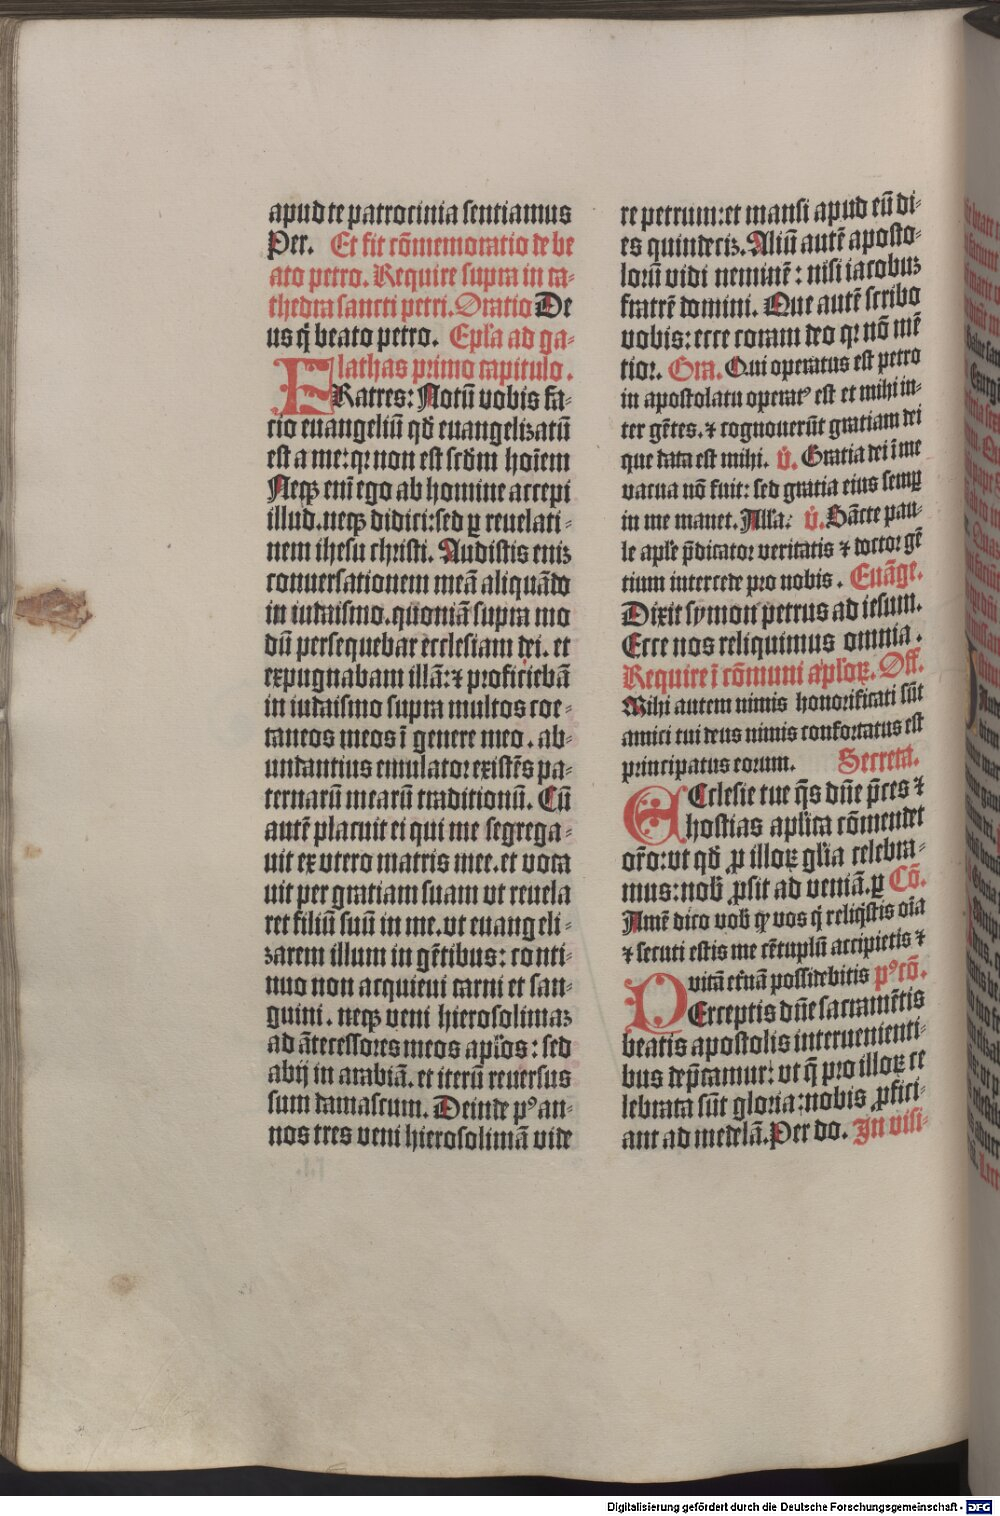 apud te patrocinia sentiamus
Per. Et fit cōmemoratio de be
ato petro. Require supra in ca-
thedra sancti petri. Oratio De
us q̄ beato petro. Epl'a ad ga-
lathas primo capitulo.
FRatres: Notū vobis fa-
cio euangeliū qđ euangelizatū
est a me: qꝛ non est scđm hoīem
Neqꝫ eni͞ ego ab homine accepi
illud. neqꝫ didici: sed ꝑ reuelati-
nem ihesu christi. Audistis eniꝫ
conuersationem meā aliquādo
in iudaismo. quoniā supra mo
dū persequebar ecclesiam dei. et
expugnabam illā: ⁊ proficiebā
in iudaismo supra multos coe-
taneos meos ī genere meo. ab-
undantius emulator existēs pa-
ternarū mearū traditionū. Cū
autē placuit ei qui me segrega-
uit ex vtero matris mee. et voca
uit per gratiam suam vt reuela
ret filiū suū in me. vt euangeli-
zarem illum in gētibus: conti-
nuo non acquieui carni et san-
guini. neqꝫ veni hierosolimaꝫ
ad ātecessores meos apl'os: sed
abij in arabiā. et iterū reuersus
sum damascum. Deinde pꝰ an-
nos tres veni hierosolimā vide
re petrum: et mansi apud eū di-
es quindeciꝫ. Aliū autē aposto-
lorū vidi neminē: nisi iacobuꝫ
fratrē domini. Que autē scribo
vobis: ecce coram deo qꝛ nō mē
tior. Gra. Qui operatus est petro
in apostolatu operatꝰ est et mihi in-
ter gētes. ⁊ cognouerūt gratiam dei
que data est mihi. v̄. Gratia dei ī me
vacua nō fuit: sed gratia eius semꝑ
in me manet. All'a. v̄. Sācte pau-
le apl'e p̄dicator veritatis ⁊ doctor gē
tium intercede pro nobis. Euāge.
Dixit symon petrus ad iesum.
Ecce nos reliquimus omnia.
Require ī cōmuni apl'oꝝ. Off.
Mihi autem nimis honorificati sūt
amici tui deus nimis confortatus est
principatus eorum. Secreta.
ECclesie tue q̄s dn̄e p̄ces ⁊
hostias apl'ica cōmendet
or̄o: vt qđ ꝓ illoꝝ gl'ia celebra-
mus: nob̄ ꝓsit ad veniā. ꝑ Cō.
Amē dico vob̄ ꝙ vos q̄ reliq̄stis oīa
⁊ secuti estis me cētuplū accipietis ⁊
vitā et̄nā possidebitis pꝰcō.
PErceptis dn̄e sacramētis
beatis apostolis interuenienti-
bus dep̄camur: vt q̄ pro illoꝝ ce
lebrata sūt gloria: nobis ꝓfici-
ant ad medelā. Per do. In visi-
Digitalisierung gefördert durch die Deutsche Forschungsgemeinschaft - DFG